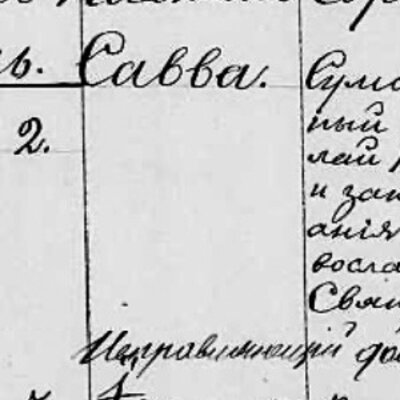 ъ. Савва. Сумс
2. ный
лай
и зак
анія
восла
Свящ
Исправляющій до